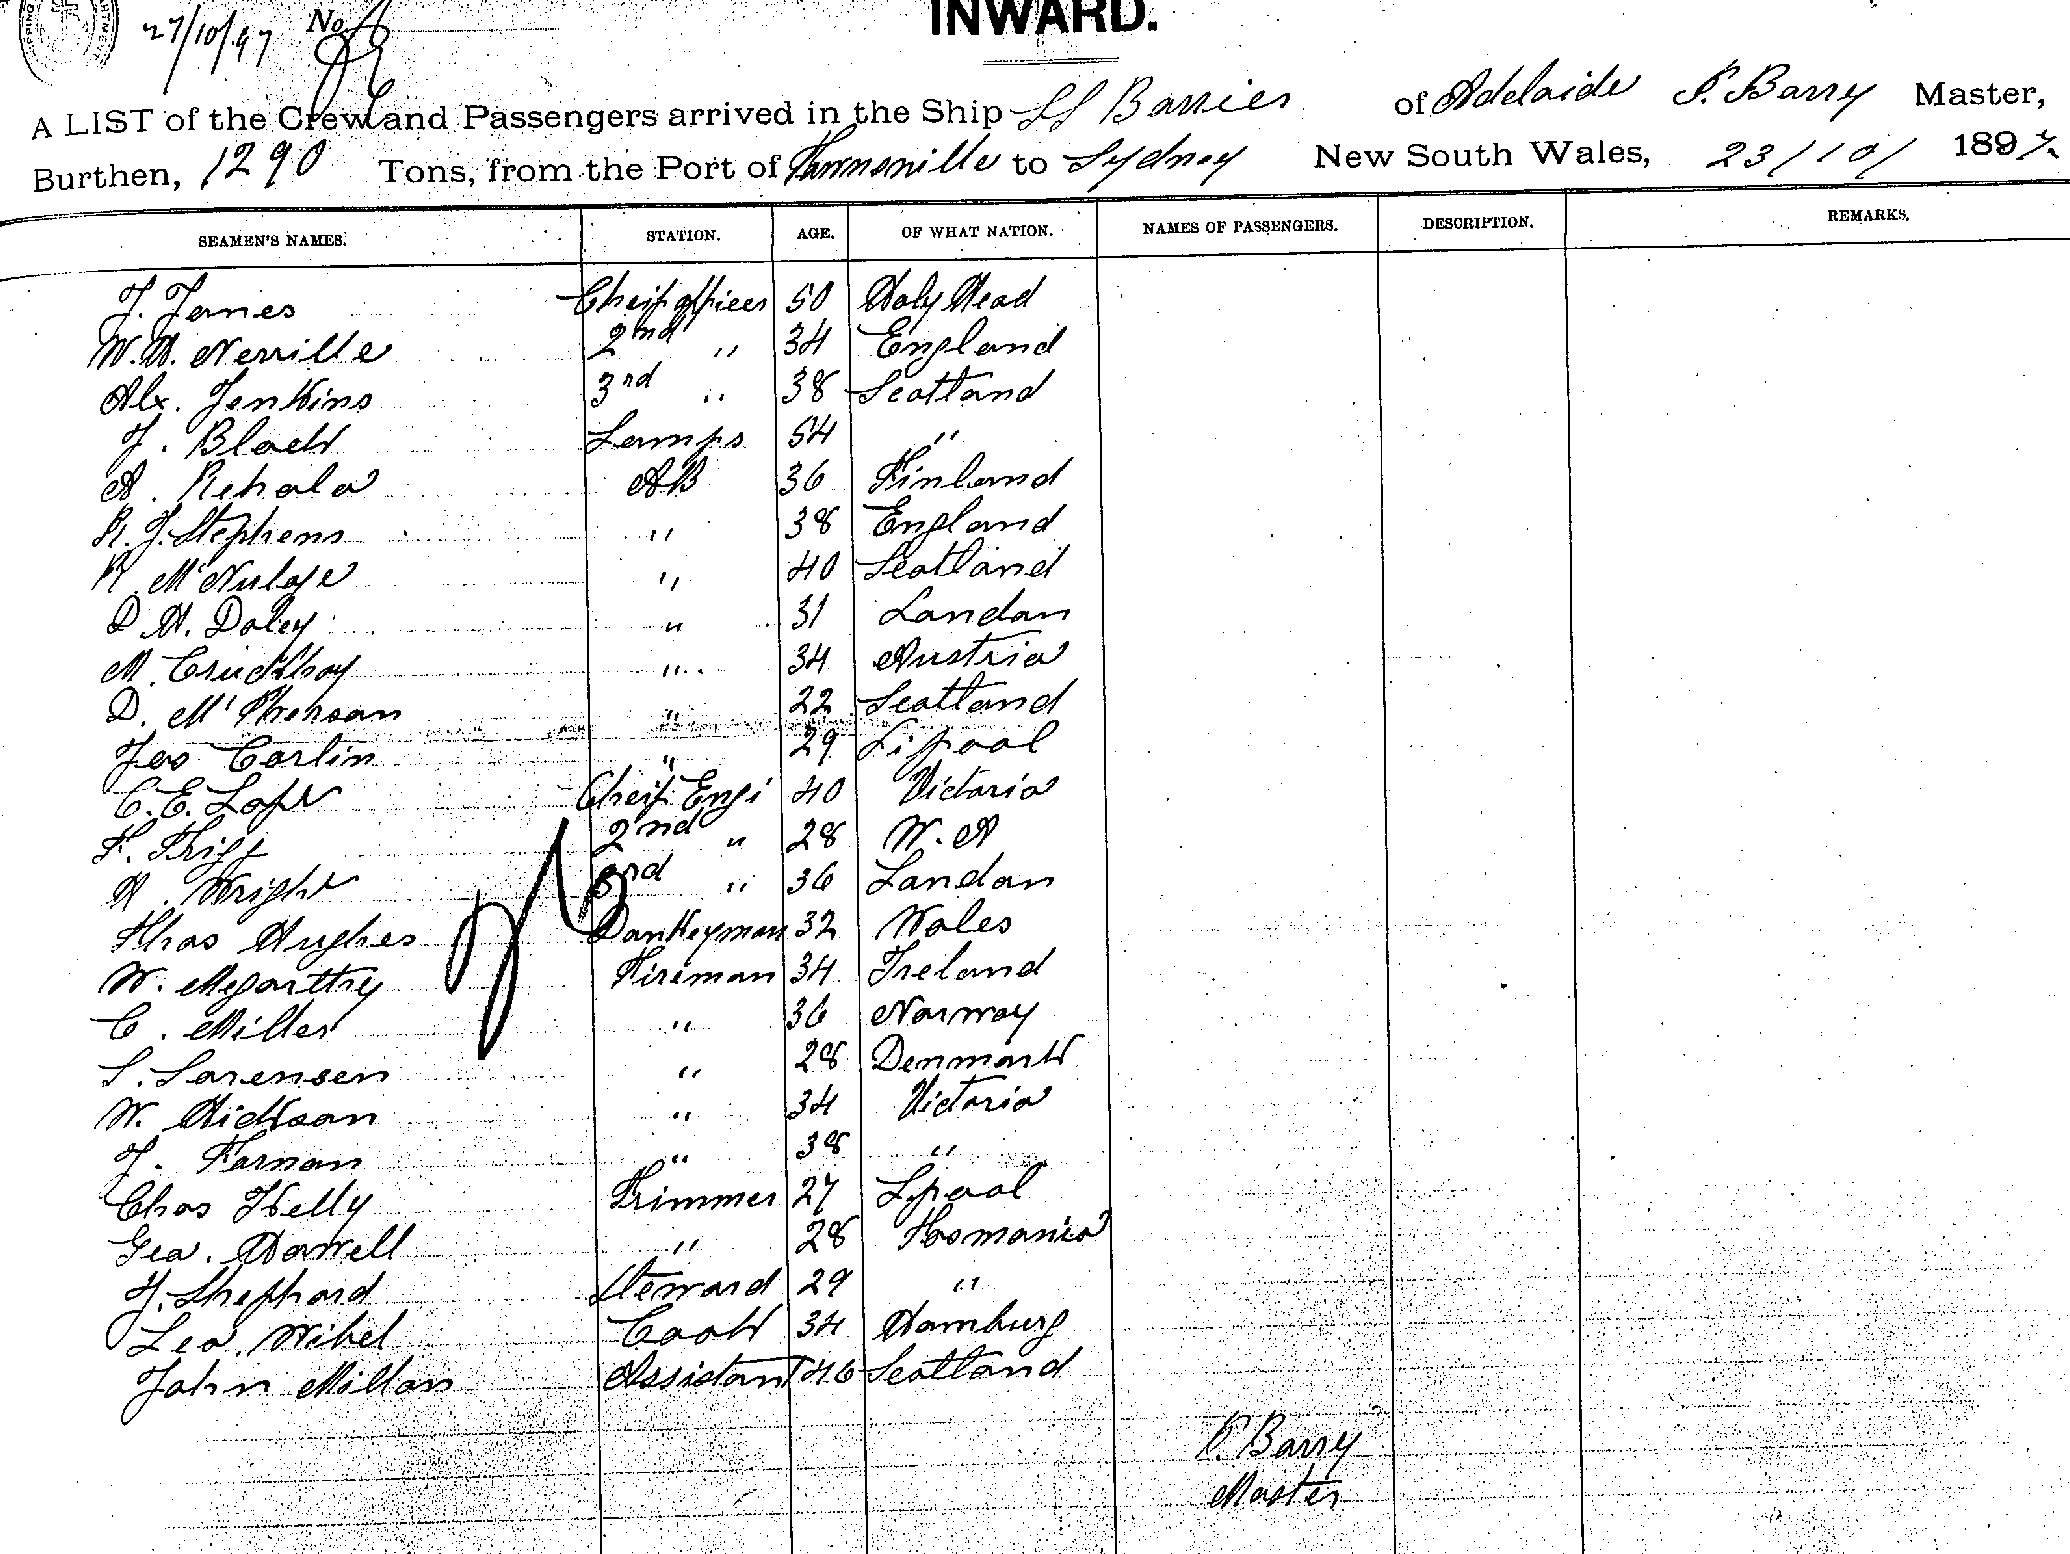 27/10/97 No
INWARD.
A LIST of the Crew and Passengers arrived in the Ship SS Barrier of Adelaide P. Barry Master,
Burthen, 1290 Tons, from the Port of Townsville to Sydney New South Wales, 23/10/ 1897
SEAMEN'S NAMES. STATION. AGE. OF WHAT NATION. NAMES OF PASSENGERS. DESCRIPTION. REMARKS.
J. James Cheif officer 50 Holy Head
W. H. Nerville 2nd " 34 England
Alx. Jenkins 3rd " 38 Scotland
J. Black Lamps 54 "
A. Rehala AB 36 Finland
R. J. Stephens " 38 England
R. McNulge " 40 Scotland
D. H. Daley " 31 London
M. " 34 Austria
D. McPherson " 22 Scotland
Jas Carlin " 29 Lipool
C. E. Lope Cheif Engi 40 Victoria
F. Trigg 2nd " 28 W. A
H. Wright 3rd " 36 London
Thos Hughes Donkeyman 32 Wales
W. Megarthy Fireman 34 Ireland
C. Miller " 36 Norway
S. Sorensen " 28 Denmark
W. Hickson " 34 Victoria
J. Farnan " 38 "
Chas Kelly Trimmer 27 Lpool
Geo. Howell " 28 Tasmania
J. Sheppard Steward 29 "
Leo. Wibel Cook 34 Hamburg
John Millan Assistant 46 Scotland
P. Barry
Master